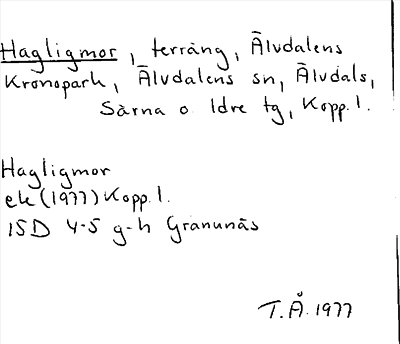 Hagligmor, terräng, Älvdalens
Kronopark, Älvdalens sn, Älvdals,
Särna o Idre tg, Kopp. l.
Hagligmor
ek (1977) Kopp. l.
15D 4-5 g-h Granunäs
T.Å. 1977